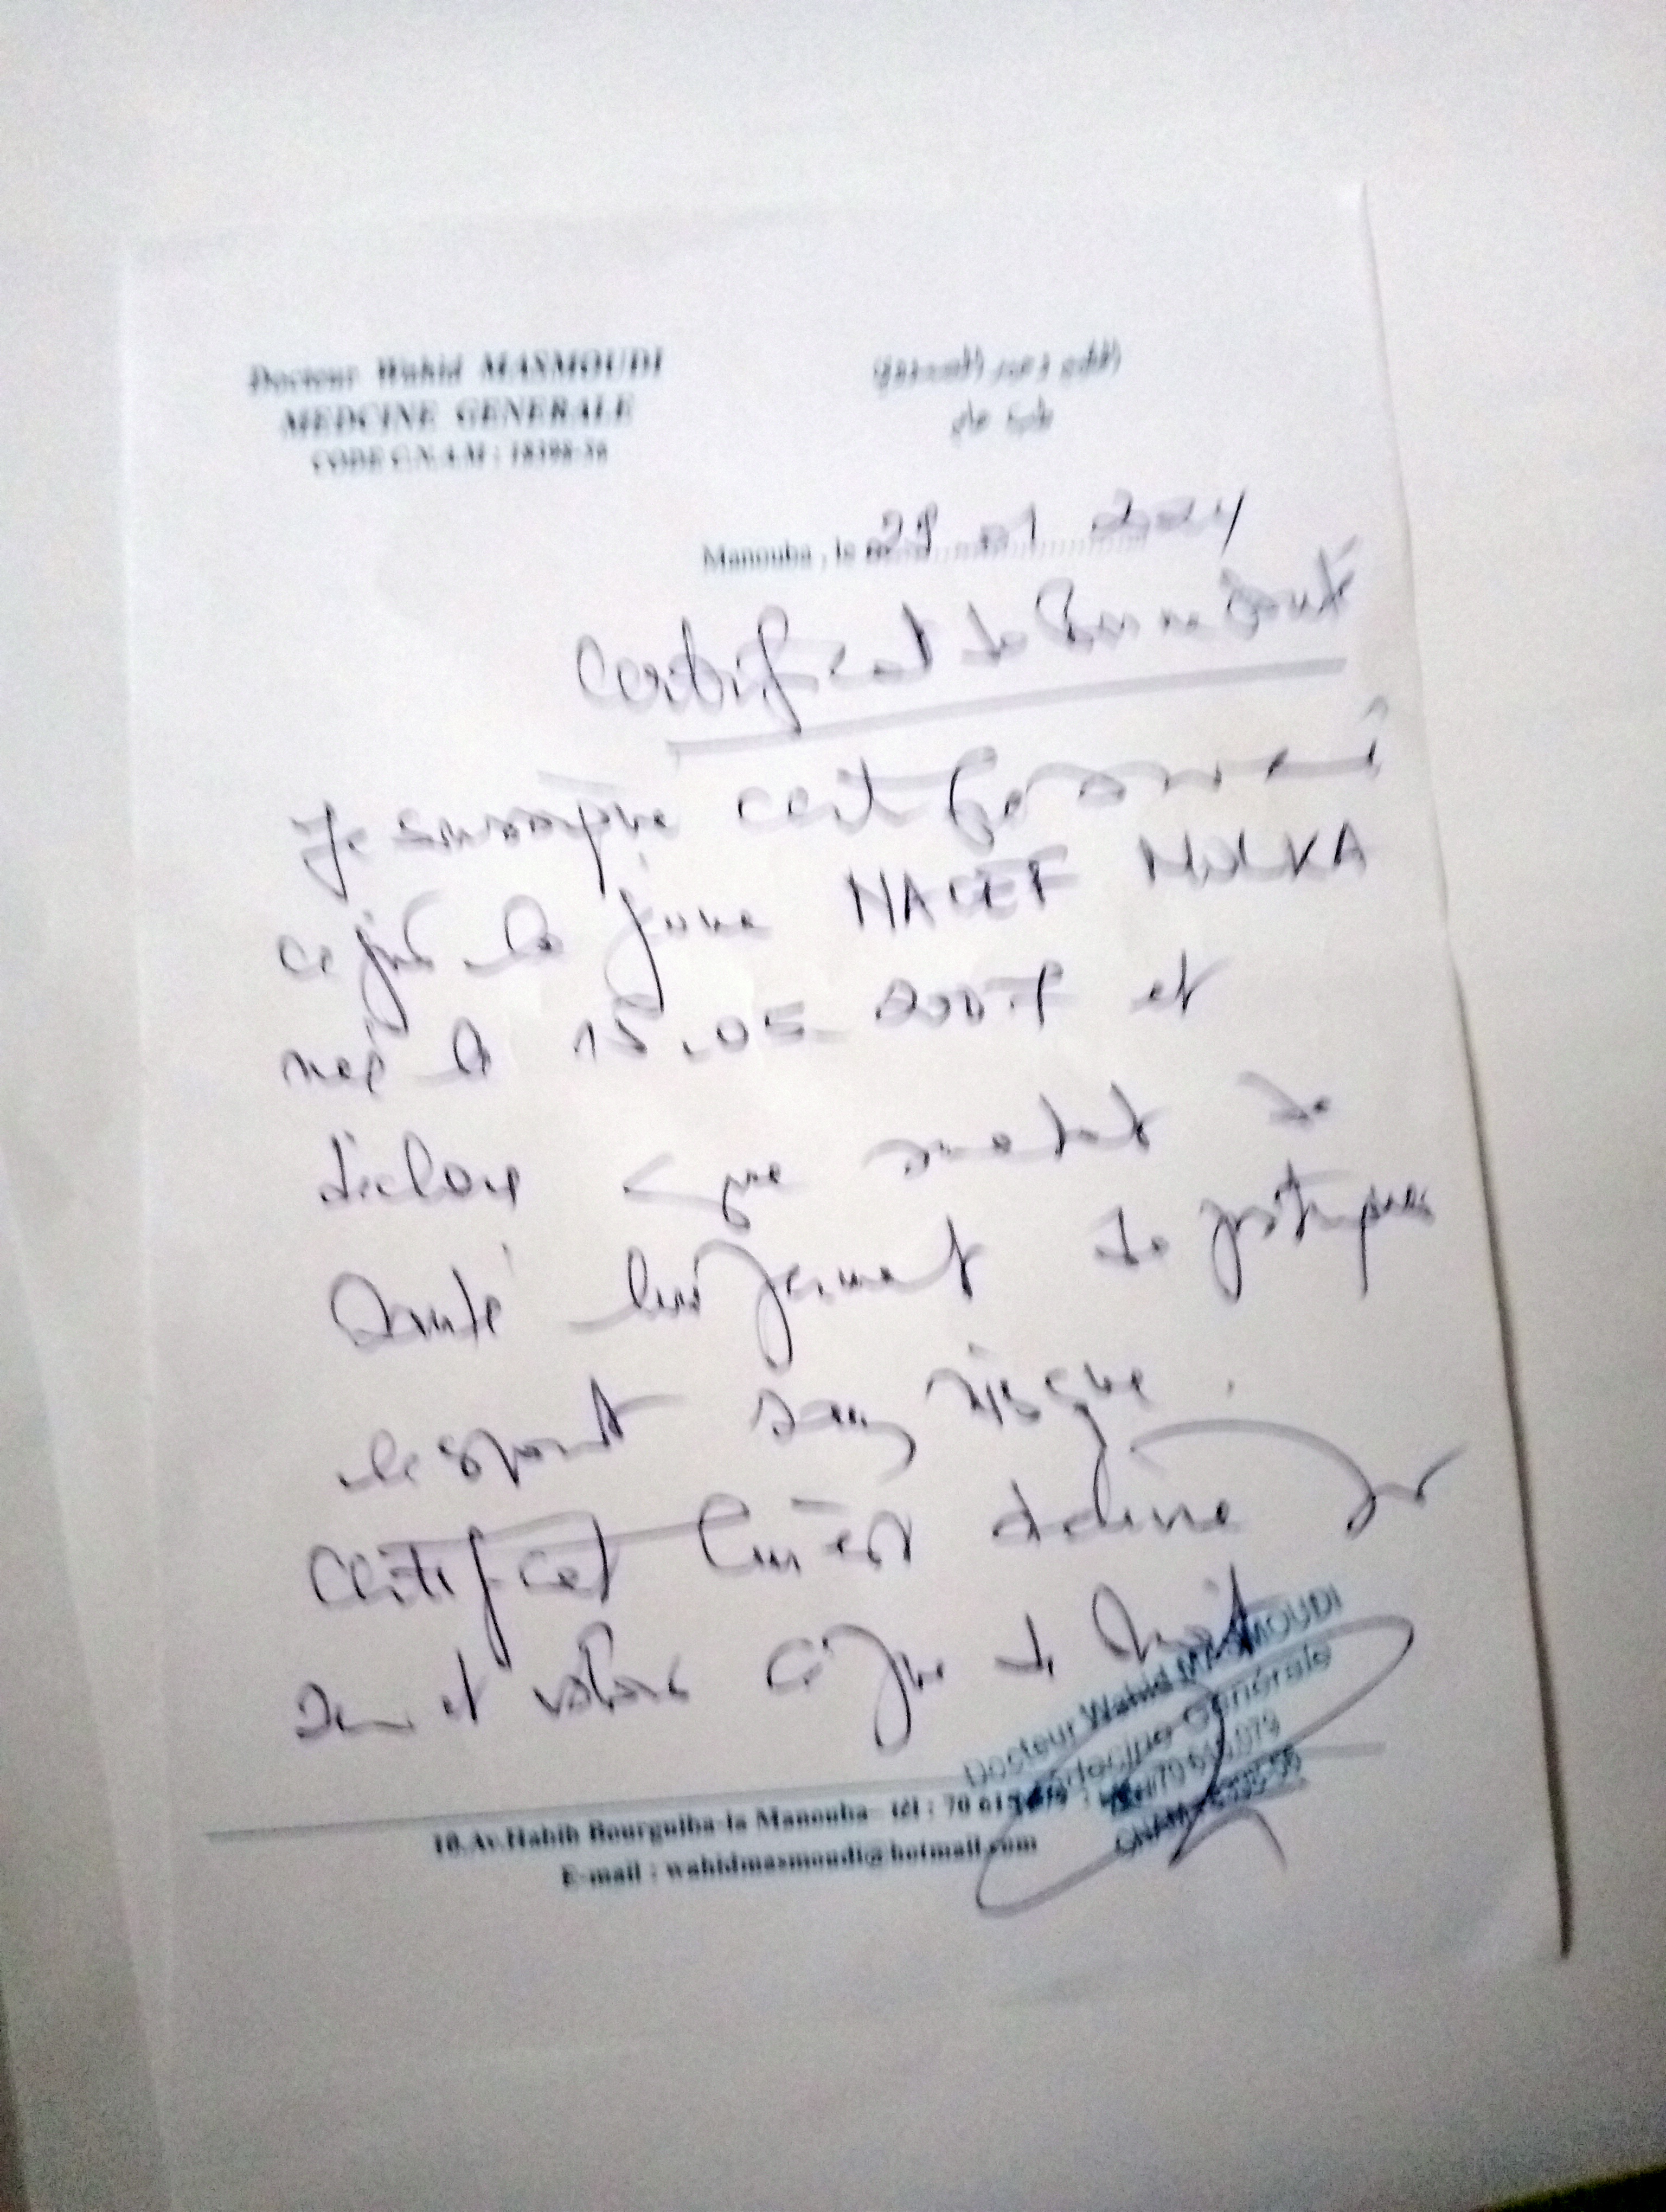 Docteur Wahid MASMOUDI
MEDCINE GENERALE
CODE C.N.A.M : 18398-56
الدكتور وحيد المصمودي
طبيب عام
Manouba , le 29 01 2024
Certificat de bonne santé
Je soussigné certifie avoir examiné
ce jour le jeune NACEF MOLKA
née le 15.05.2007 et
déclare que son état de
santé lui permet de pratiquer
le sport sans risque.
Certificat lui est délivré pour
servir et valoir ce que de droit
Docteur Wahid MASMOUDI
Médecine Générale
CNAM
10.Av.Habib Bourguiba-la Manouba- tél : 70 615 079
E-mail : wahidmasmoudi@hotmail.com